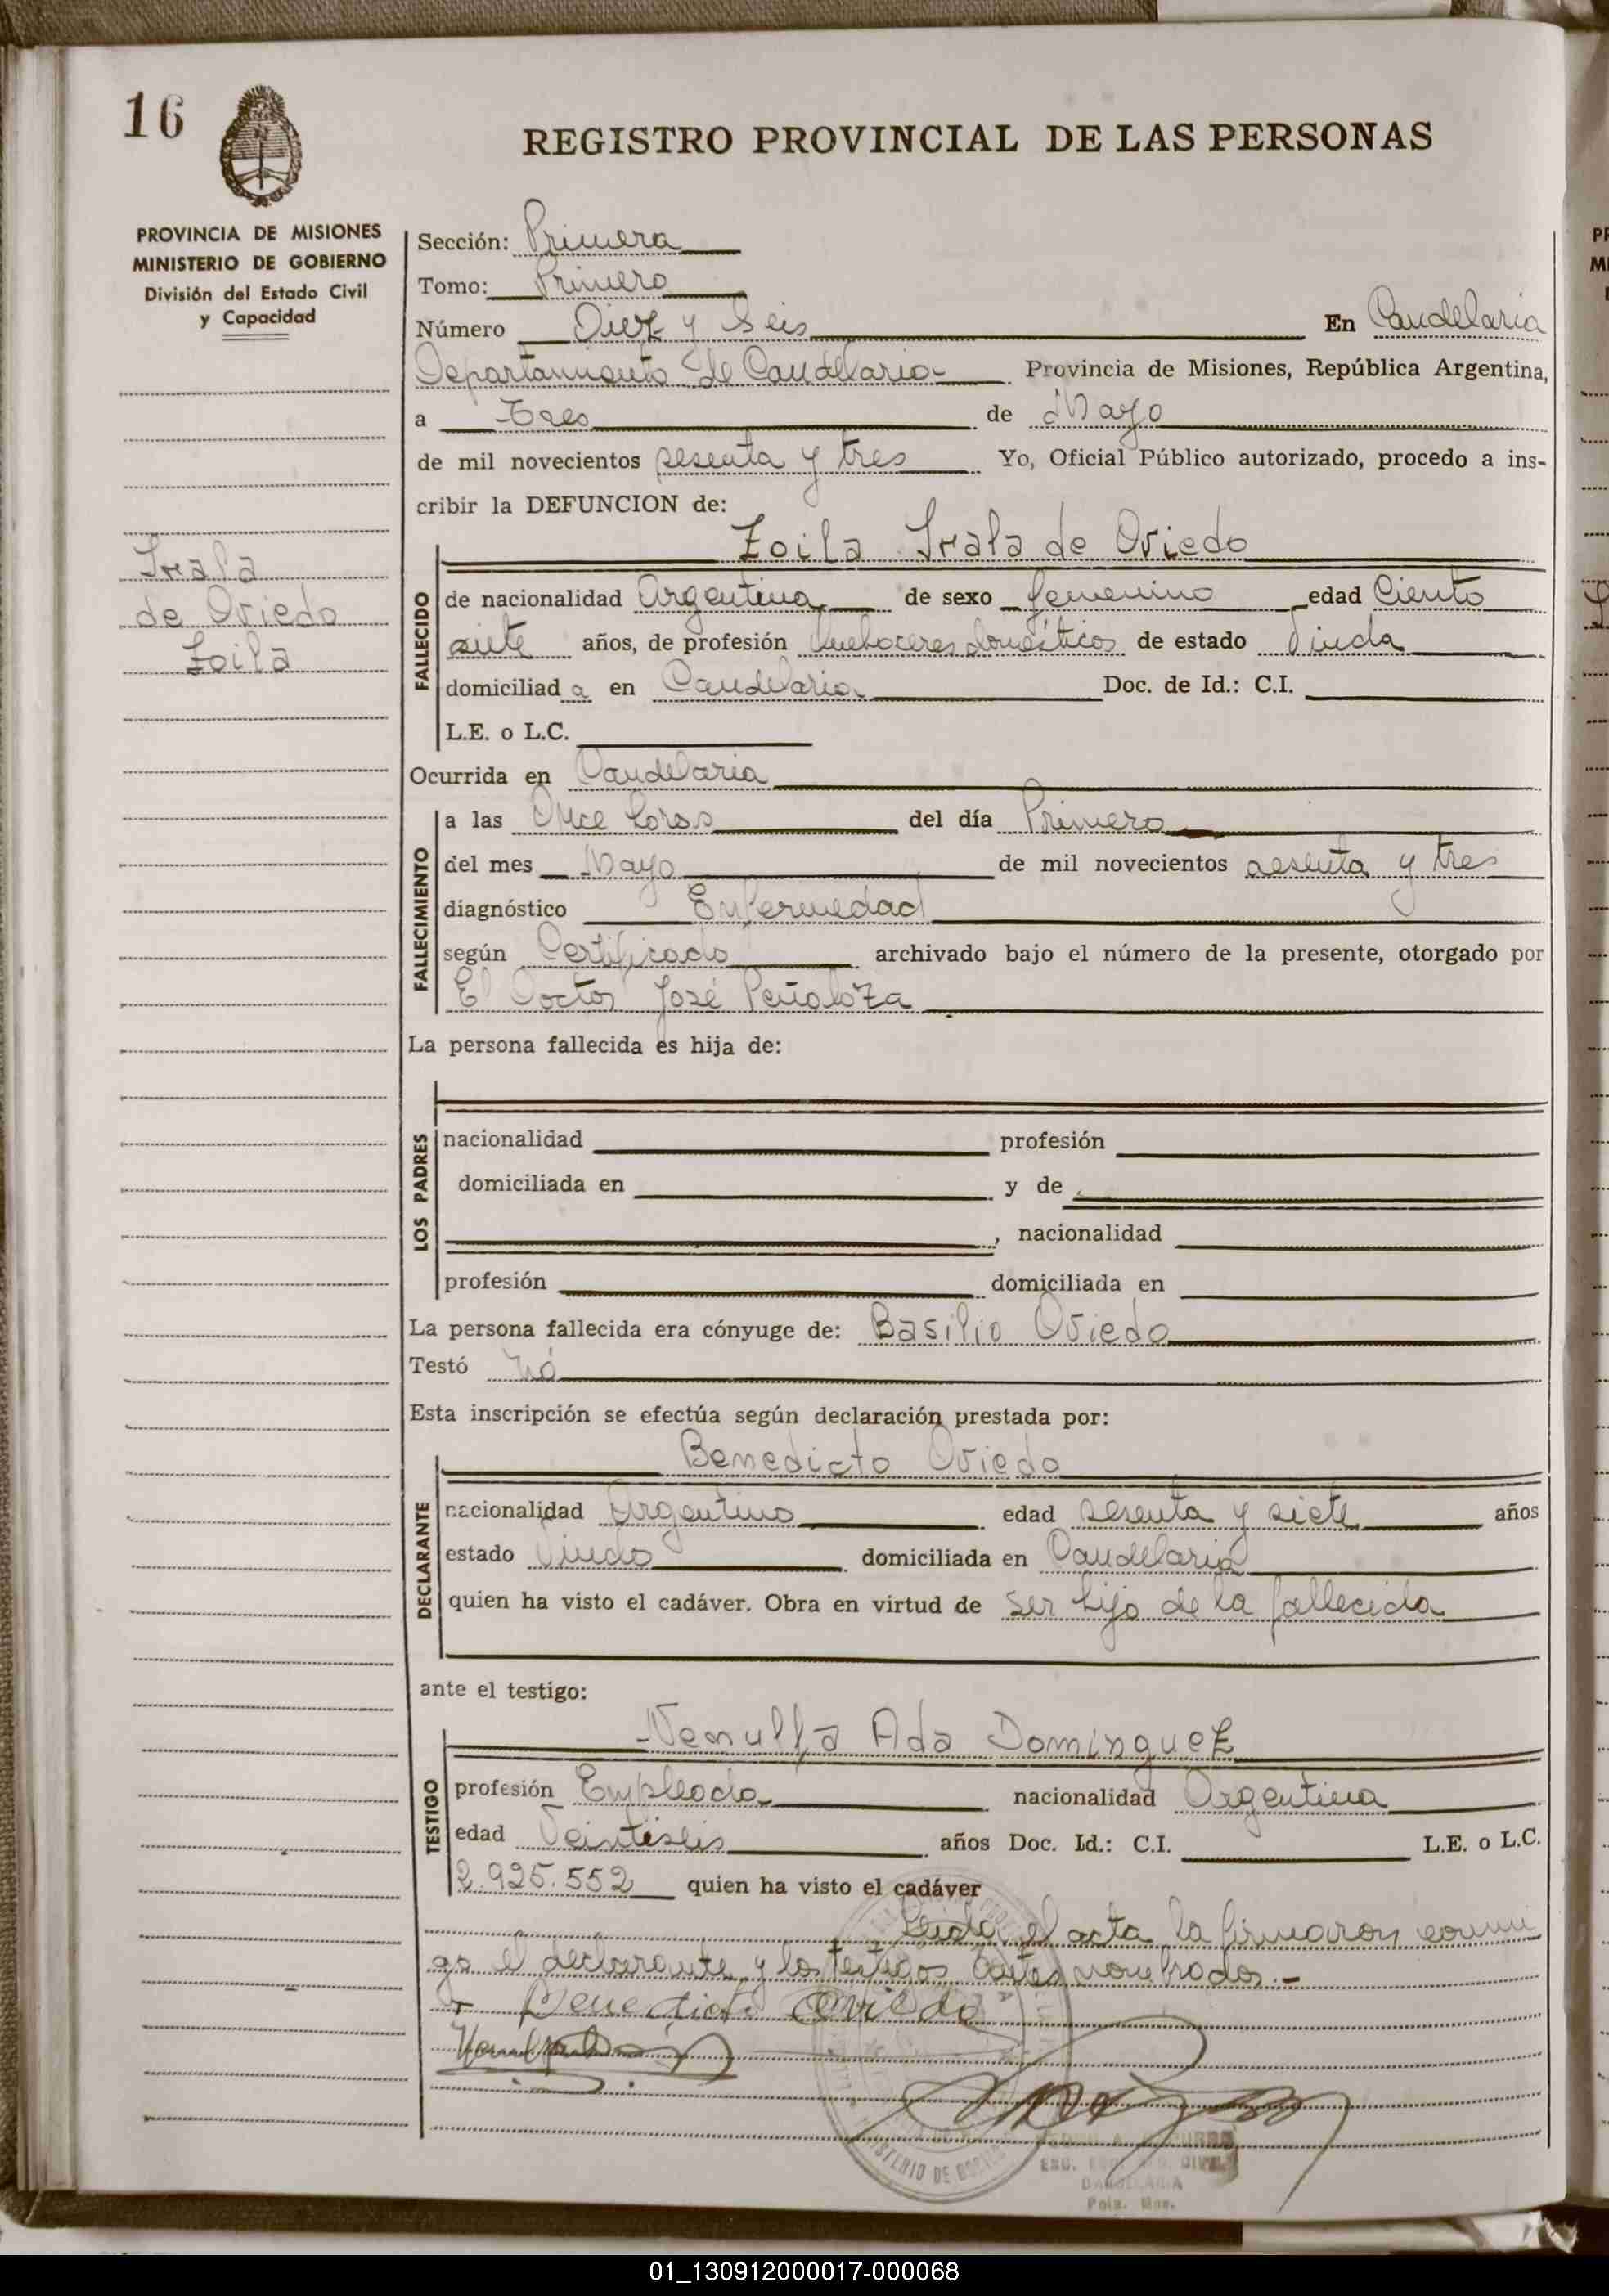 16
REGISTRO PROVINCIAL DE LAS PERSONAS
PROVINCIA DE MISIONES
MINISTERIO DE GOBIERNO
División del Estado Civil
y Capacidad
Irala
de Oviedo
Zoila
Sección: Primera
Tomo: Primero
Número Diez y Seis En Candelaria
Departamiento de Candelaria Provincia de Misiones, República Argentina,
a Tres de Mayo
de mil novecientos sesenta y tres Yo, Oficial Público autorizado, procedo a ins-
cribir la DEFUNCION de:
Zoila Irala de Oviedo
FALLECIDO
de nacionalidad Argentina de sexo femenino edad Ciento
siete años, de profesión Quehaceres domésticos de estado Viuda
domiciliad a en Candelaria Doc. de Id.: C.I.
L.E. o L.C.
Ocurrida en Candelaria
FALLECIMIENTO
a las Once horas del día Primero
del mes Mayo de mil novecientos sesenta y tres
diagnóstico Enfermedad
según Certificado archivado bajo el número de la presente, otorgado por
El Doctor José Peñaloza
La persona fallecida es hija de:
LOS PADRES
nacionalidad profesión
domiciliada en y de
, nacionalidad
profesión domiciliada en
La persona fallecida era cónyuge de: Basilio Oviedo
Testó Nó
Esta inscripción se efectúa según declaración prestada por:
Benedicto Oviedo
DECLARANTE
nacionalidad Argentino edad sesenta y siete años
estado Viudo domiciliada en Candelaria
quien ha visto el cadáver. Obra en virtud de ser hijo de la fallecida
ante el testigo:
Ada Dominguez
TESTIGO
profesión Empleada nacionalidad Argentina
edad Veintiseis años Doc. Id.: C.I. L.E. o L.C.
2.925.552 quien ha visto el cadáver
Leida el acta la firmaron conmi
go el declarante y los testigos antes nombrados.-
Benedicto Oviedo
CANDELARIA
Pcia. Mnes.
01_130912000017-000068